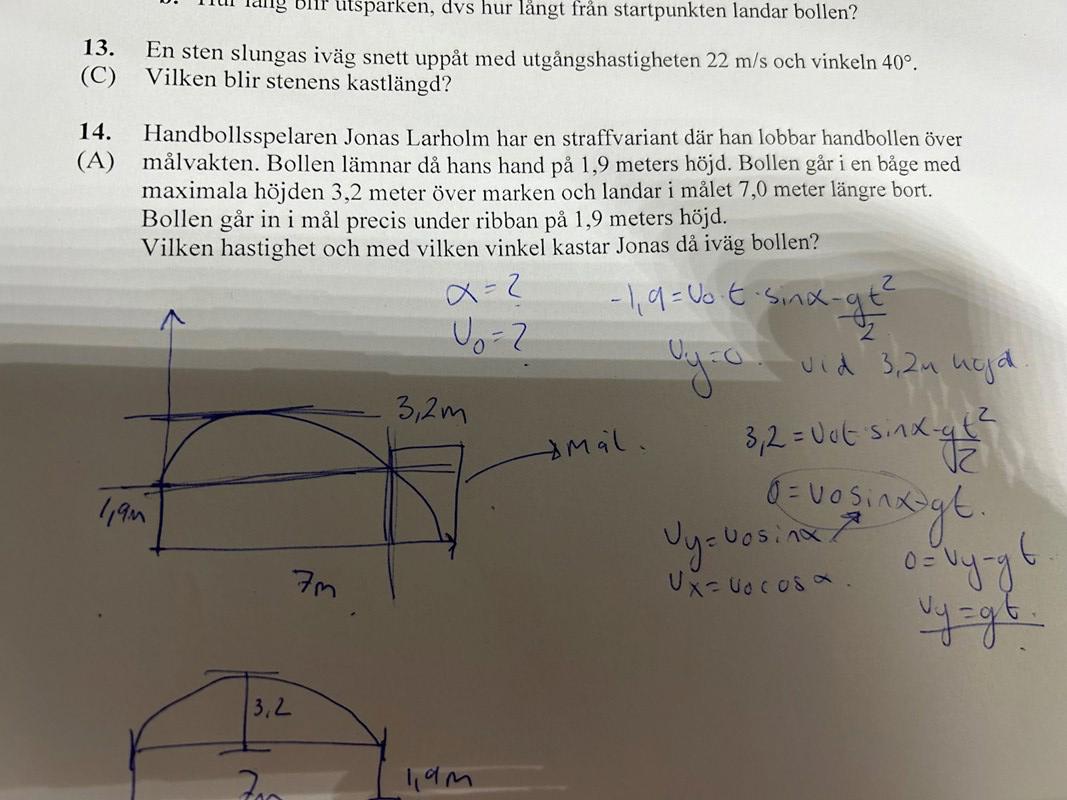 b. Hur lång blir utsparken, dvs hur långt från startpunkten landar bollen?
13. En sten slungas iväg snett uppåt med utgångshastigheten 22 m/s och vinkeln 40°.
(C) Vilken blir stenens kastlängd?
14. Handbollsspelaren Jonas Larholm har en straffvariant där han lobbar handbollen över
(A) målvakten. Bollen lämnar då hans hand på 1,9 meters höjd. Bollen går i en båge med
maximala höjden 3,2 meter över marken och landar i målet 7,0 meter längre bort.
Bollen går in i mål precis under ribban på 1,9 meters höjd.
Vilken hastighet och med vilken vinkel kastar Jonas då iväg bollen?
α = ?
v₀ = ?
-1,9 = v₀·t·sinα - gt²/2
vy = 0. vid 3,2m höjd.
3,2m
Mål.
1,9m
7m
3,2 = v₀t·sinα - gt²/2
0 = v₀sinα - gt.
vy = v₀sinα
vx = v₀cosα.
0 = vy - gt
vy = gt.
3,2
7m
1,9m